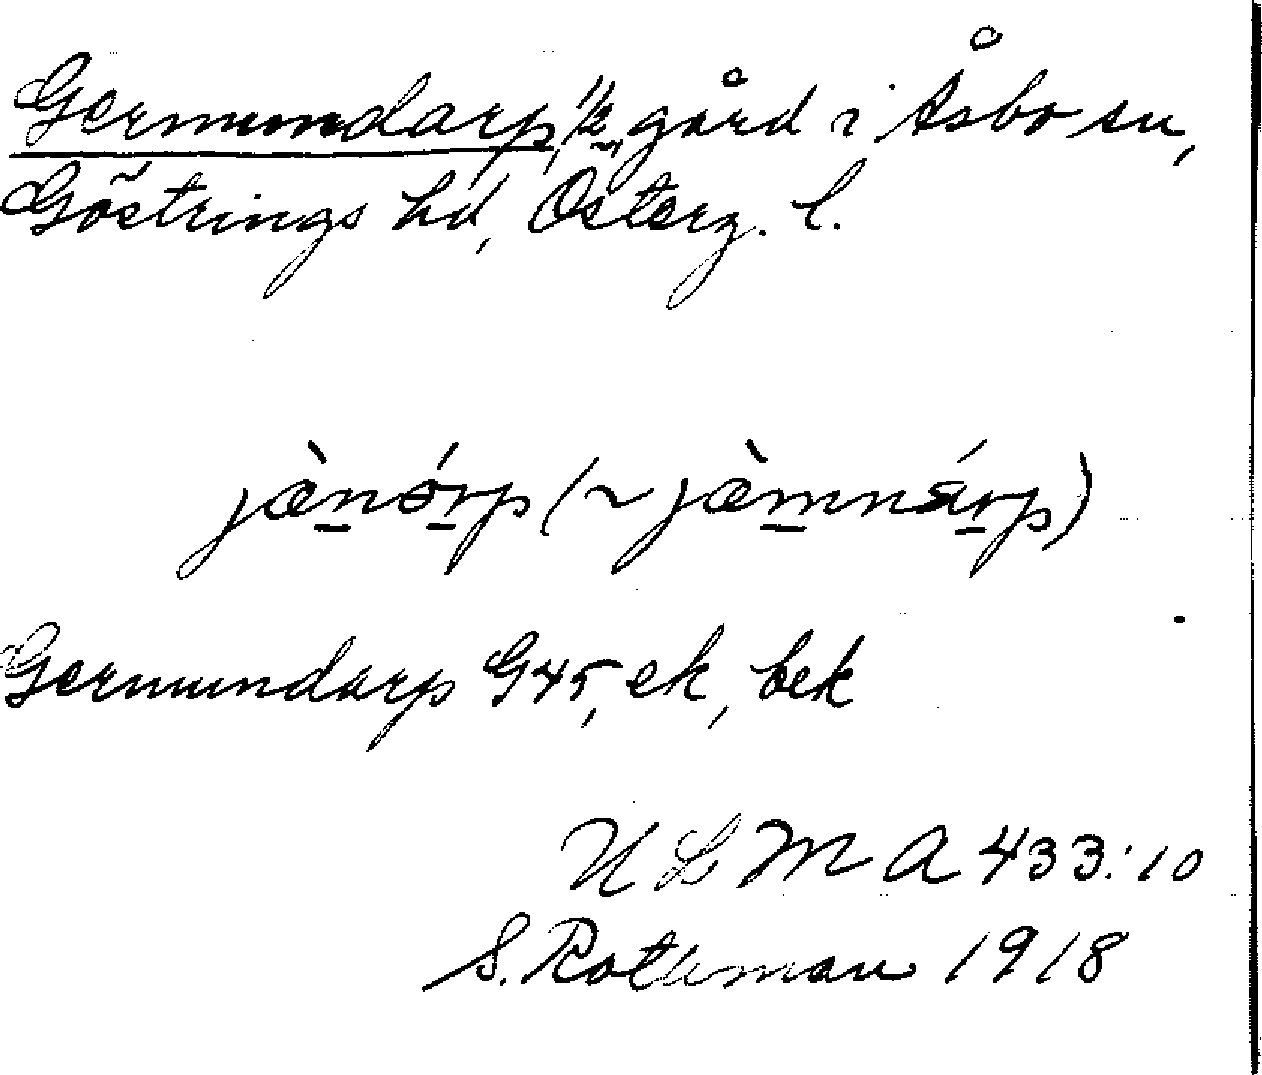 Germundarp, 1/2 gård i Åsbo sn,
Göstrings hd, Österg. l.
jæ̀nórp (~ jæ̀mnárp)
Germundarp G45, ek, bek
ULMA 433:10
S. Rothman 1918